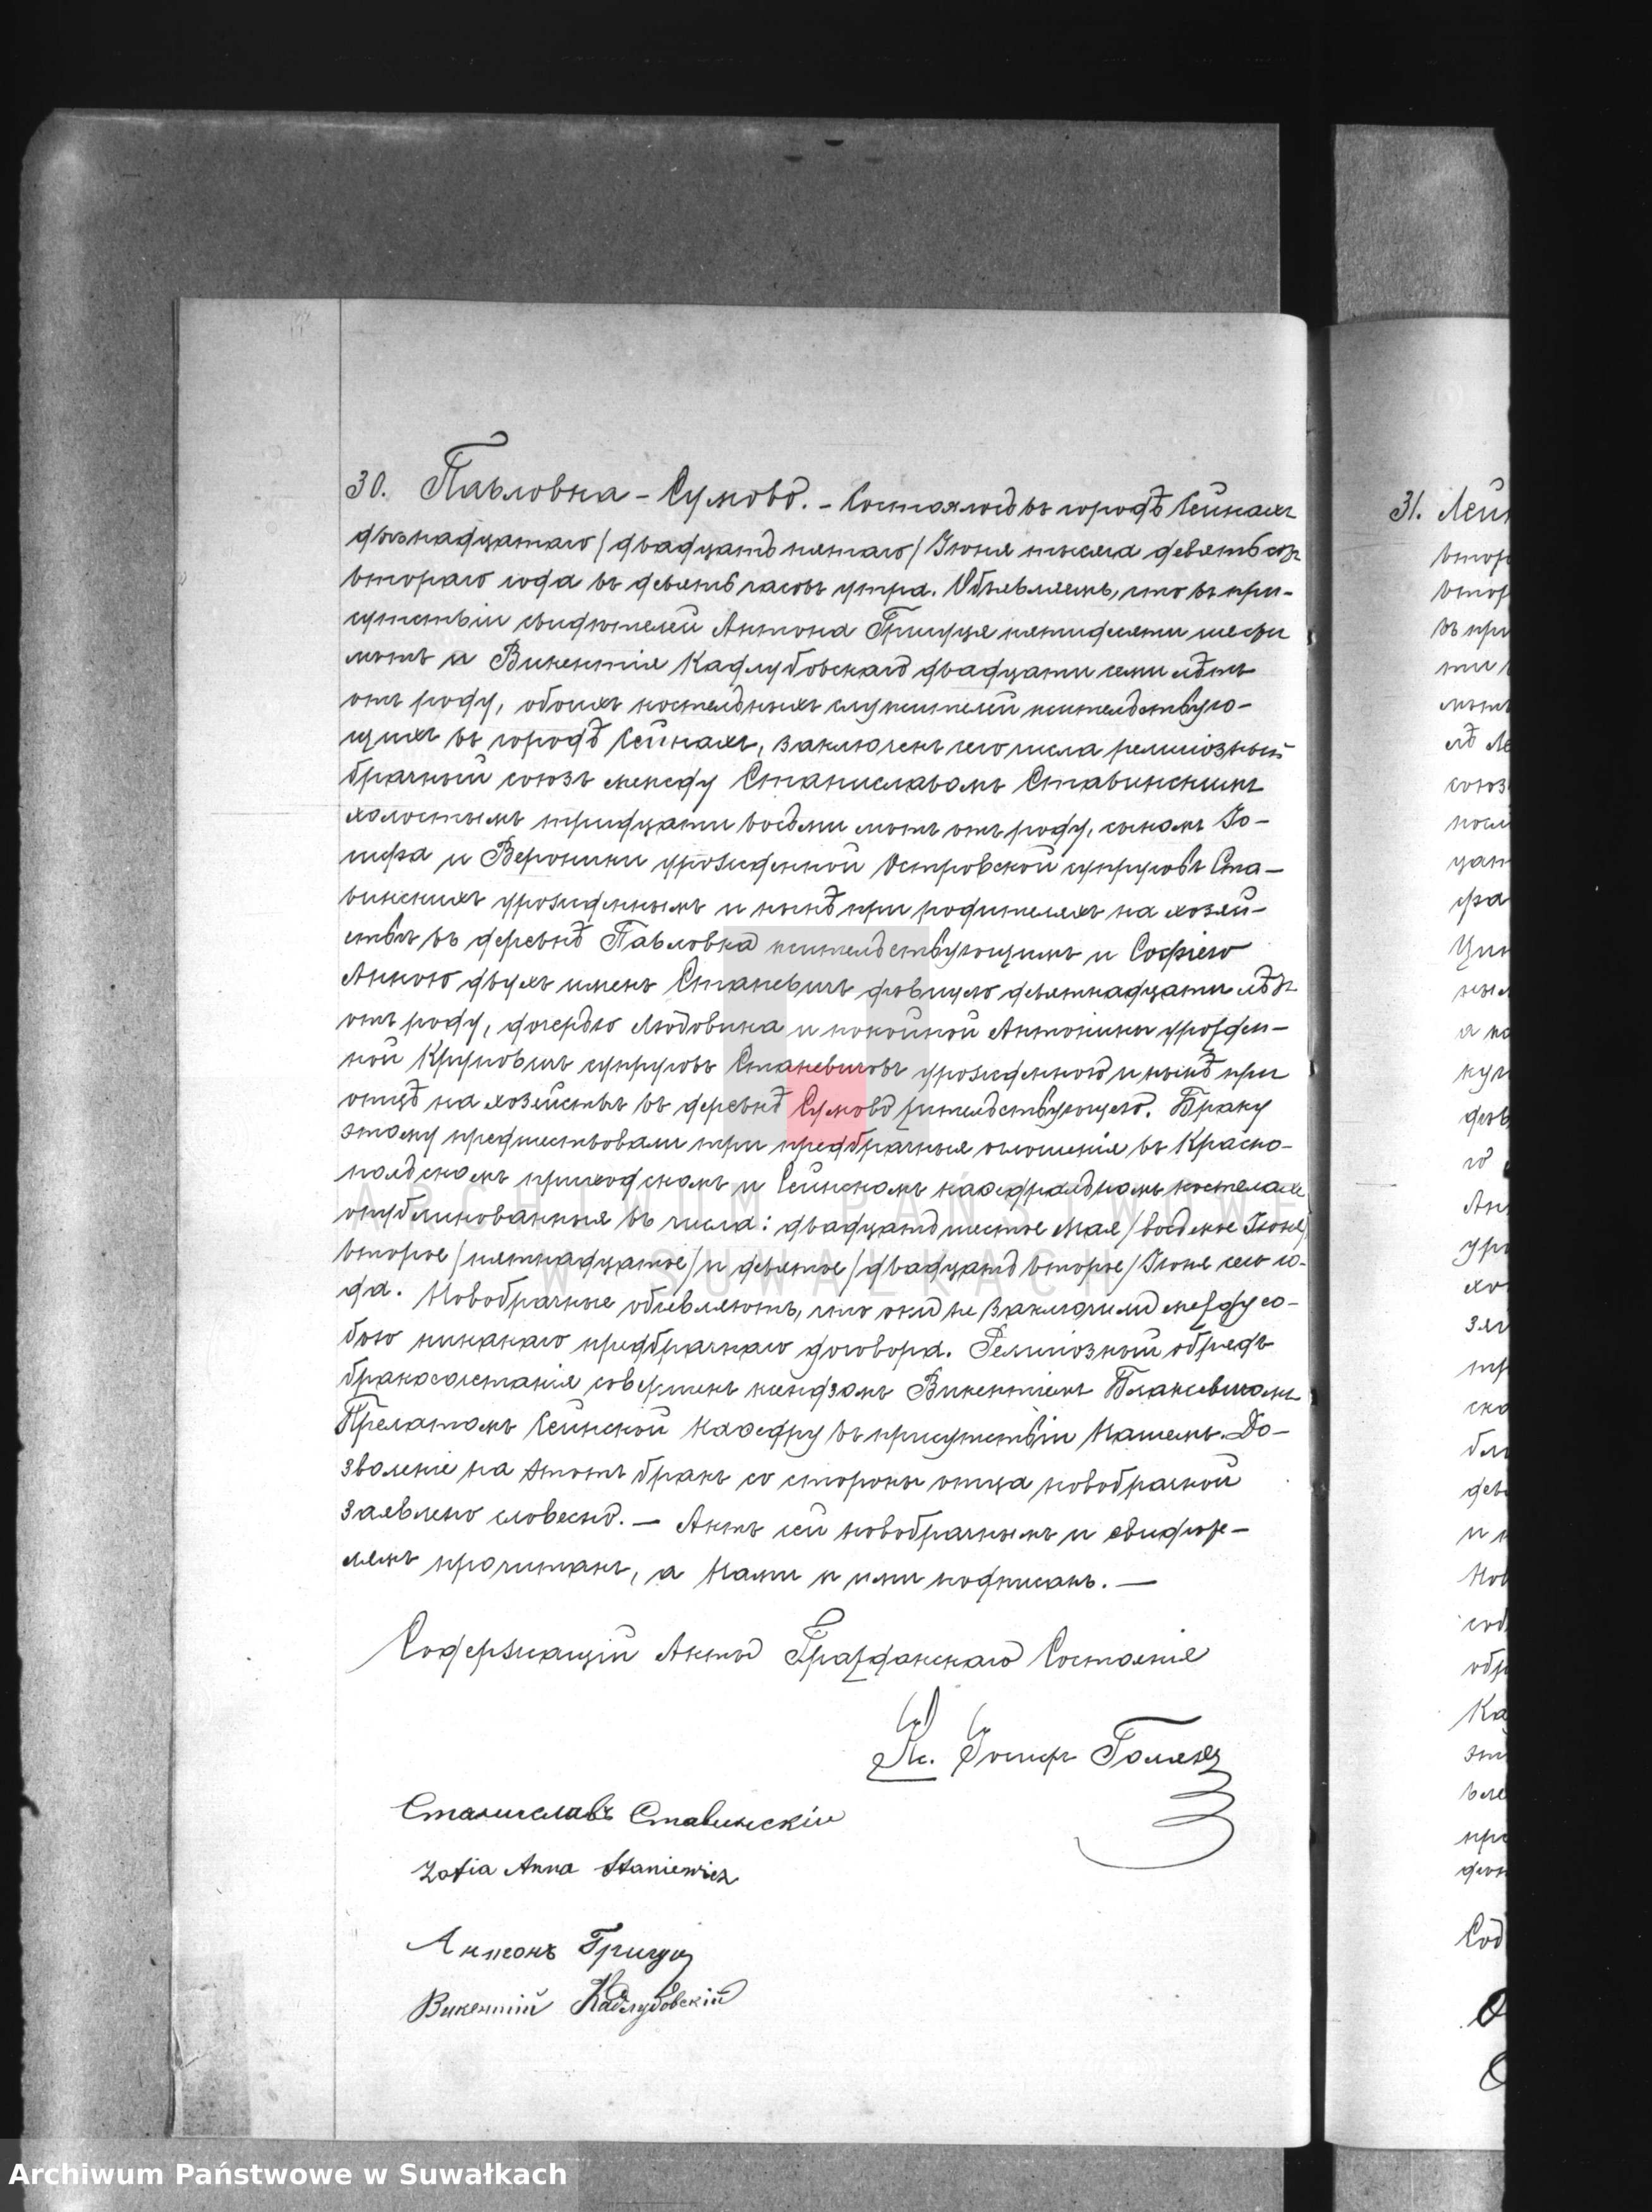 30. Павловка - Сумово. - Состоялось въ городѣ Сейнахъ
двѣнадцатаго /двадцать пятаго/ Іюня тысяча девятьсотъ
втораго года въ девять часовъ утра. Объявляемъ, что въ при-
сутствіи свидѣтелей Антона Грицуя пятидесяти шести
лѣтъ и Викентія Кадлубовскаго двадцати семи лѣтъ
отъ роду, обоихъ костельныхъ служителей жительствую-
щихъ въ городѣ Сейнахъ, заключенъ сего числа религіозный
брачный союзъ между Станиславомъ Ставинскимъ
холостымъ тридцати восьми лѣтъ отъ роду, сыномъ Іо-
сифа и Вероники урожденной Островской супруговъ Ста-
винскихъ урожденнымъ и нынѣ при родителяхъ на хозяй-
ствѣ въ деревнѣ Павловка жительствующимъ и Софіею
Анною двухъ именъ Станевичъ дѣвицею девятнадцати лѣтъ
отъ роду, дочерью Людовика и покойной Антонины урожден-
ной Круповичъ супруговъ Станевичовъ урожденною и нынѣ при
отцѣ на хозяйствѣ въ деревнѣ Сумово жительствующею. Браку
этому предшествовали три предбрачныя оглашенія въ Красно-
польскомъ приходскомъ и Сейнскомъ каѳедральномъ костелахъ
опубликованныя въ числа: двадцать шестое Мая /восьмое Іюня/
второе /пятнадцатое/ и девятое /двадцать второе/ Іюня сего го-
да. Новобрачные объявляютъ, что они не заключили между со-
бою никакого предбрачнаго договора. Религіозный обрядъ
бракосочетанія совершенъ ксендзомъ Викентіемъ Бланевичомъ
Прелатомъ Сейнской Каѳедры въ присутствіи Нашемъ. До-
зволеніе на этотъ бракъ со стороны отца новобрачной
заявлено словесно. — Актъ сей новобрачнымъ и свидѣте-
лямъ прочитанъ, а Нами и ими подписанъ. —
Содержащій Акты Гражданскаго Состоянія
Кс. Іосифъ
Станиславъ Ставинскій
Zofia Anna Staniewicz
Антонъ Грицуй
Викентій Кадлубовскій
31. Лей
ARCHIWUM PAŃSTWOWE
W SUWAŁKACH
Archiwum Państwowe w Suwałkach